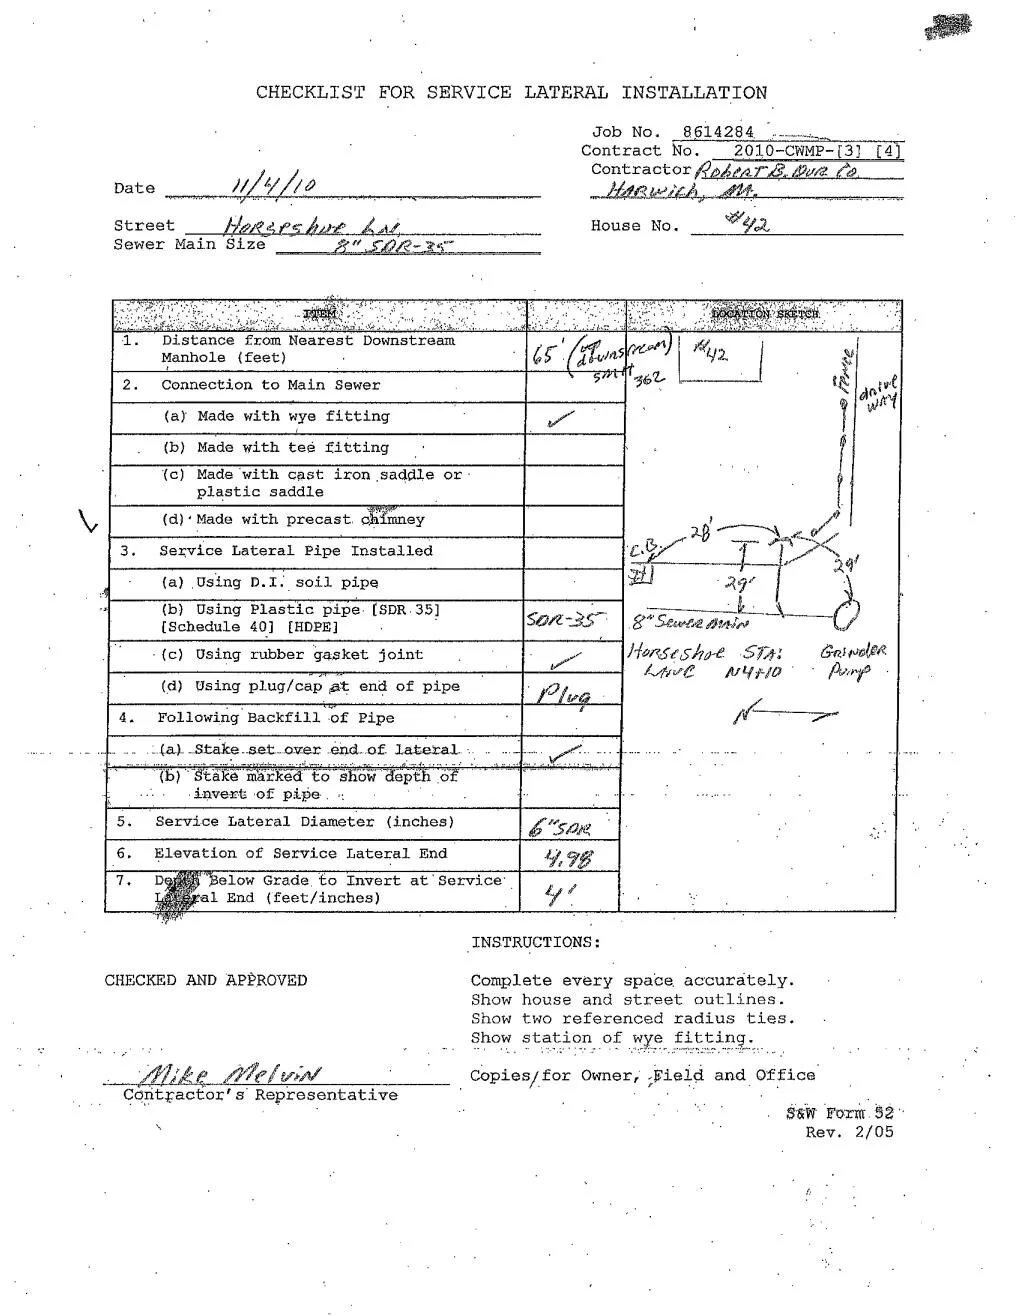 CHECKLIST FOR SERVICE LATERAL INSTALLATION
Job No. 8614284
Contract No. 2010-CWMP-[3] [4]
Contractor Robert B. Our Co.
Harwich, MA.
Date 11/4/10
Street Horseshoe Ln.
House No. #42
Sewer Main Size 8" SDR-35
ITEM
LOCATION SKETCH
1. Distance from Nearest Downstream
Manhole (feet)
65' (
downstream)
SMH
362
#42
Fence
drive
way
2. Connection to Main Sewer
(a) Made with wye fitting ✓
(b) Made with tee fitting
(c) Made with cast iron saddle or
plastic saddle
(d) Made with precast chimney
3. Service Lateral Pipe Installed
(a) Using D.I. soil pipe
(b) Using Plastic pipe [SDR 35]
[Schedule 40] [HDPE]
SDR-35
(c) Using rubber gasket joint ✓
(d) Using plug/cap at end of pipe Plug
C.B.
28'
29'
29'
8" Sewer main
Horseshoe
Lane
STA:
N4+10
Grinder
Pump
N
4. Following Backfill of Pipe
(a) Stake set over end of lateral ✓
(b) Stake marked to show depth of
invert of pipe
5. Service Lateral Diameter (inches) 6" SDR
6. Elevation of Service Lateral End 4.98
7. Depth Below Grade to Invert at Service
Lateral End (feet/inches) 4'
INSTRUCTIONS:
CHECKED AND APPROVED
Complete every space accurately.
Show house and street outlines.
Show two referenced radius ties.
Show station of wye fitting.
Mike Melvin
Contractor's Representative
Copies/for Owner, Field and Office
S&W Form 52
Rev. 2/05